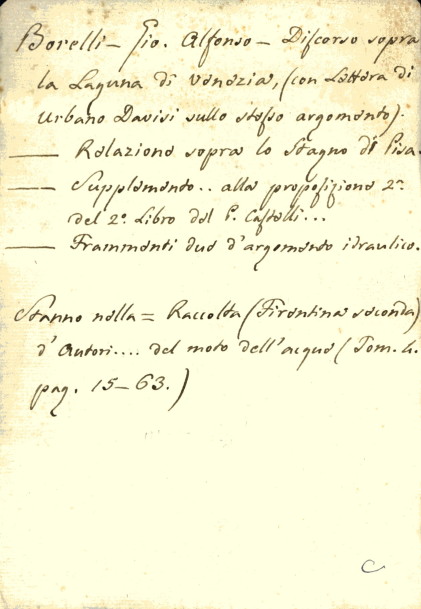 Borelli — Gio. Alfonso — Discorso sopra
la Laguna di Venezia, (con Lettera di
Urbano Davisi sullo stesso argomento).
—— Relazione sopra lo Stagno di Pisa.
—— Supplemento .. alla proposizione 2ª
del 2º Libro del P. Castelli...
—— Frammenti due d'argomento idraulico.
Stanno nella = Raccolta (Fiorentina seconda)
d'Autori.... del moto dell'acque (Tom. 4.
pag. 15–63.)
C